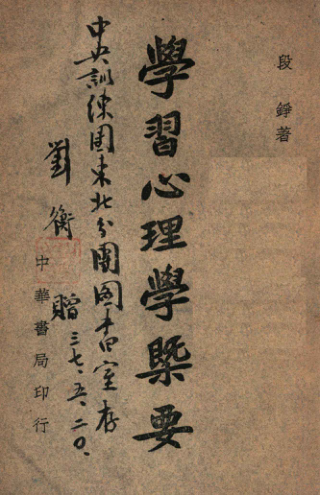 段錚著
學習心理學槩要
中央訓練團東北分團圖書室存
劉衡贈
三七、五、二〇、
中華書局印行